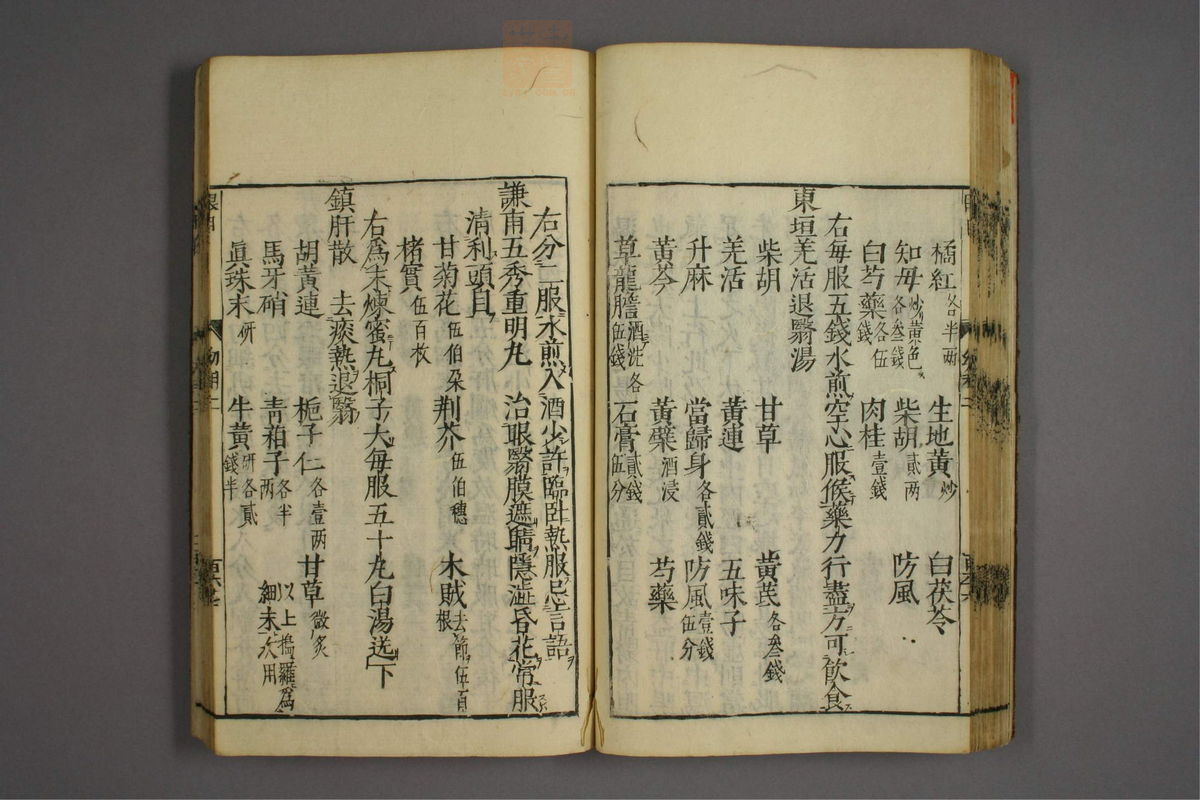 橘紅各半两 生地黄炒 白茯苓
知母炒黄色各叁錢 柴胡貳两 防風
白芍藥各伍錢 肉桂壹錢
右每服五錢水煎空心服候藥力行盡方可飲食
東垣羌活退翳湯
柴胡 甘草 黄芪各叁錢
羌活 黄連 五味子
升麻 當歸身各貳錢 防風壹錢伍分
黄芩 黄蘗酒浸 芍藥
草龍膽酒洗各伍錢 石膏貳錢伍分
右分二服水煎入酒少許臨卧熱服忌言語
謙甫五秀重明丸 治眼翳膜遮睛隱澁昏花常服
清利頭目
甘菊花伍伯朶 荆芥伍伯穗 木賊去節伍百根
楮實伍百枚
右為末煉蜜丸桐子大每服五十丸白湯送下
鎮肝散 去痰熱退翳
胡黄連 梔子仁各壹两 甘草微炙
馬牙硝 青葙子各半两 以上擣羅為細末次用
眞珠末研 牛黄研各貳錢半